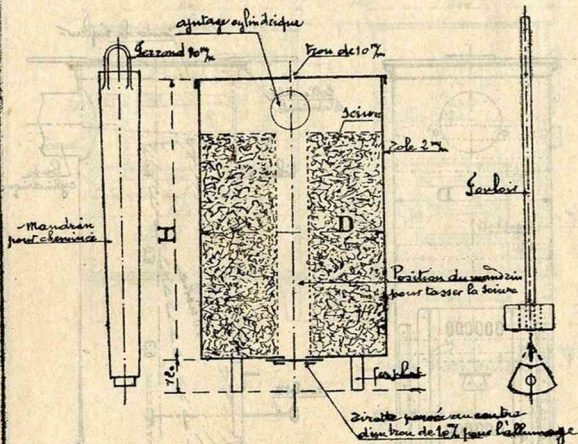 ajutage cylindrique
fer rond 10 m/m
trou de 10 m/m
sciure
Tole 2 m/m
Fouloir
mandrin
pour cheminée
H
D
Position du mandrin
pour tasser la sciure
fer plat
percée au centre
d'un trou de 10 m/m pour l'allumage